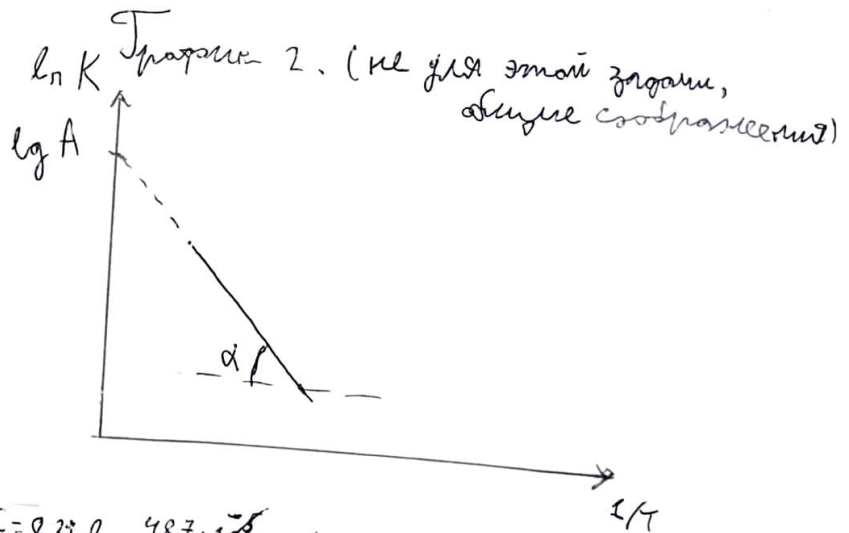 График 2. (не для этой задачи,
общие соображения)
ln K
lg A
α
1/T